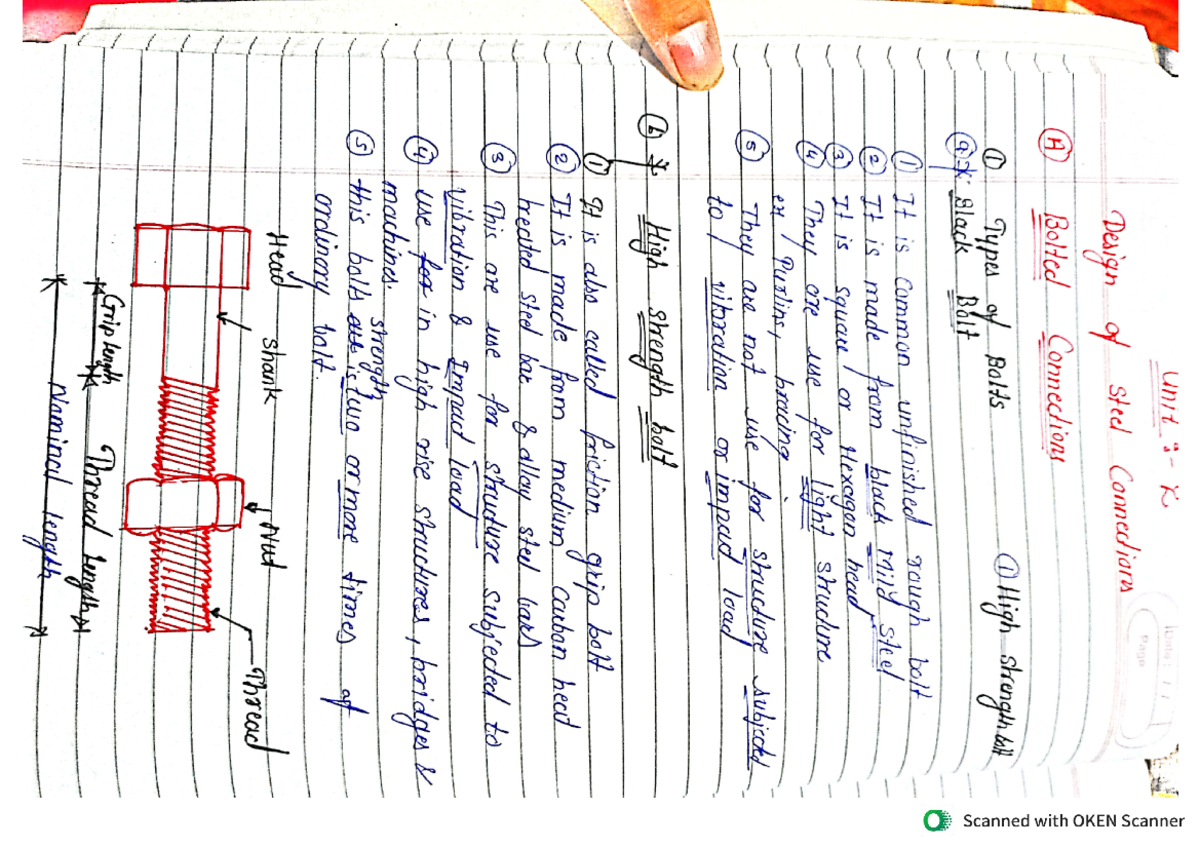 Date: / /
Page
Unit 3 - K
Design of Steel Connections
Ⓐ Bolted Connections
① Types of Bolts ① High strength bolt
ⓐ * Black Bolt
① It is common unfinished rough bolt
② It is made from black mild steel
③ It is square or Hexdigan head
④ They are use for light structure
ex Purlins, bracing
⑤ They are not use for structure subjected
to vibration or impact load
ⓑ * High strength bolt
① It is also called friction grip bolt
② It is made from medium carbon head
heated steel bar & alloy steel bars
③ This are use for structure subjected to
vibration & Impact load
④ use for in high rise structures, bridges &
machines.
⑤ this bolts are strength is two or more times of
ordinary bolt.
Head shank Nut Thread
Grip length Thread length
Naminal length
Scanned with OKEN Scanner